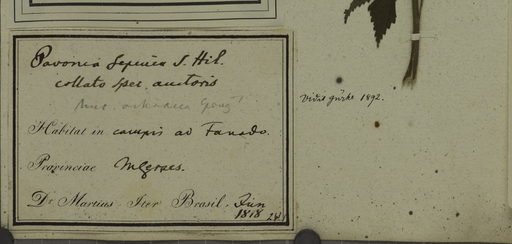 Pavonia sepium S. Hil.
collato spec. auctoris
Habitat in campis ad Fanado.
Provinciae MGeraes.
Dr Martius Iter Brasil. Jun
1818
Vidit Gürke 1892.